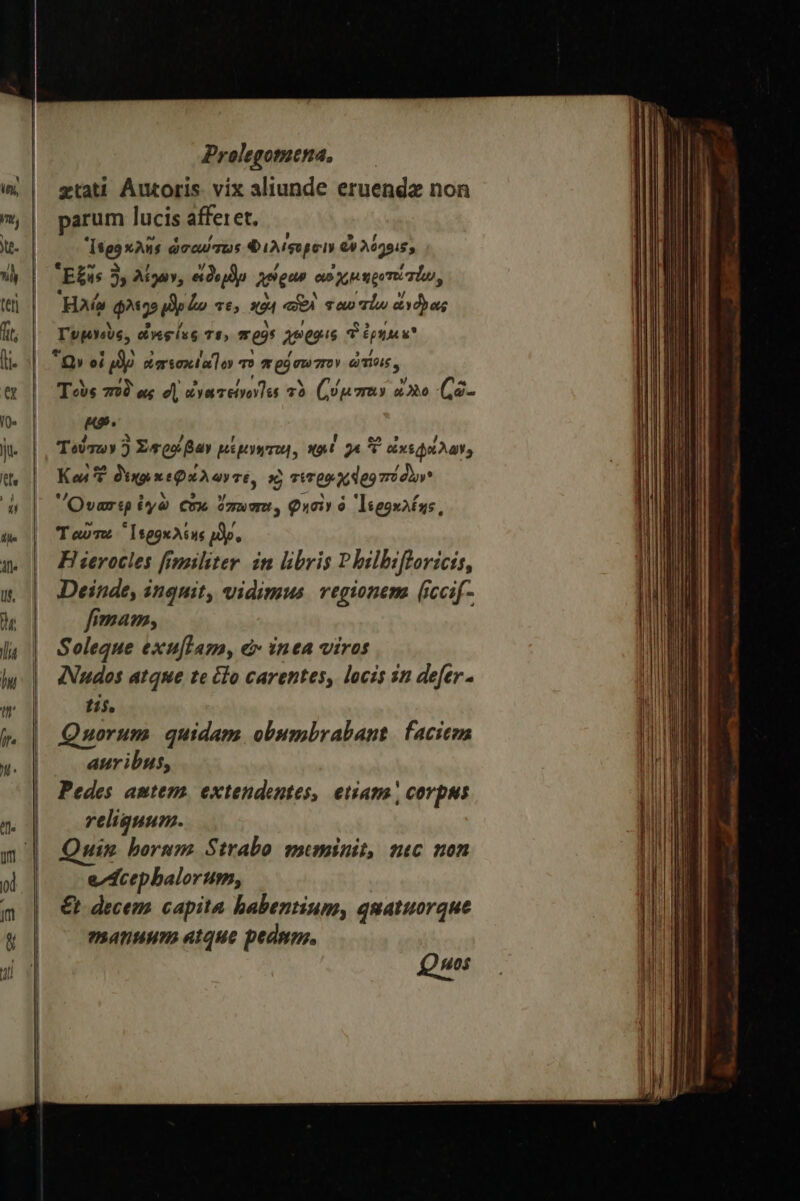 Prolegomena.
ætati Autoris vix aliunde eruendæ non
parum lucis afferet.
Ἱεροκλῆς ὡσαύτως Φιλίστορσιν ἐν λόγοις,
Ἑξῆς δὲ, λέγων, εἴδομεν χώραν αὐχμηροτάτην,
Ἡλίῳ
Γυμνοὺς, ἀνεστίους τε, πρὸς χώραις τ̃ ἐρήμου·
Ὧν οἱ μὲν ἀπεσκίαζον τὸ πρόσωπον ὠτίοις,
Τοὺς πόδας δ' ἀνατείνοντες τὸ ζύμπαν ἄλλο ζῶ-
μα.
Τούτων δὲ Στράβων μέμνηται, καί γε τ̃ ἀκεφάλων,
Καὶ τ̃ δέκα κεφάλων τε, καὶ τετραχειροπόδων·
Ὅνπερ ἐγὼ οὐκ ὄπωπα, φησὶν ὁ Ἱεροκλέης,
Ταῦτα Ἱεροκλέης μὲν.
Hierocles similiter in libris Philhistoricis,
Deinde, inquit, vidimus regionem siccis-
simam,
Soleque exustam, & in ea viros
Nudos atque tecto carentes, locis in deser-
tis.
Quorum quidam obumbrabant faciem
auribus,
Pedes autem extendentes, etiam corpus
reliquum.
Quin horum Strabo meminit, nec non
Acephalorum,
Et decem capita habentium, quatuorque
manuum atque pedum.
Quos